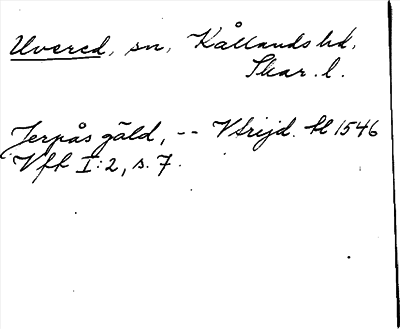 Uvered, sn, Kållands hd,
Skar. l.
Jerpås gäld, -- Vtrijd. tl 1546
Vfh I:2, s. 7.